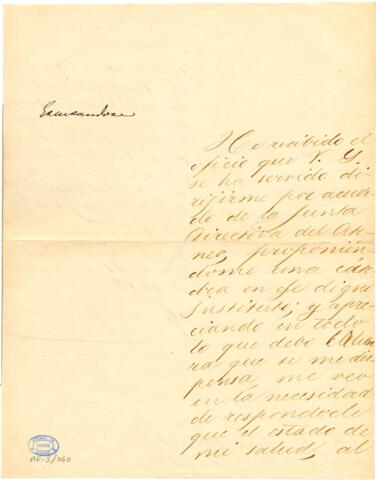 Escusandose
He recibido el
oficio que V. S.
se ha servido di
rijirme por acuer
do de la Junta
Directiva del Ate-
neo, proponién-
dome una cáte
dra en ese digno
Instituto; y apre
ciando en todo
lo que debo la
ra que se me dis
pensa, me veo
en la necesidad
de responderle
que el estado de
mi salud, al
AR-3/060